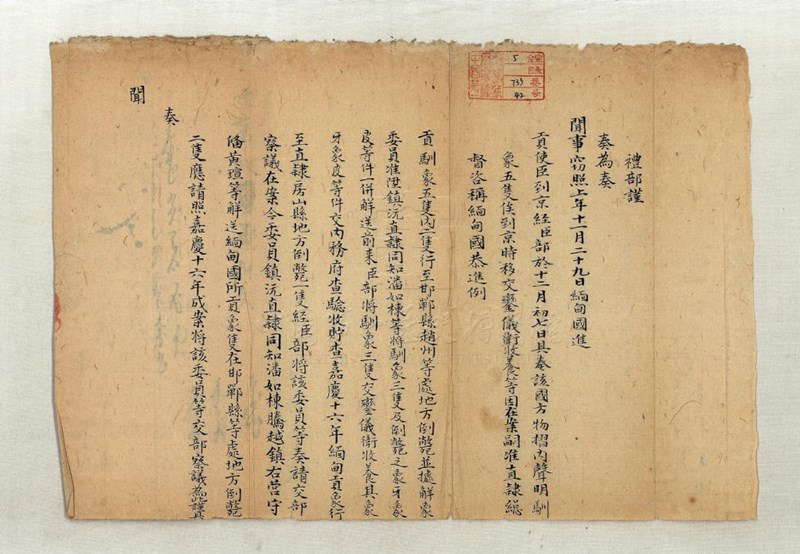 禮部謹
奏為奏
聞事窃照上年十一月二十九日緬甸國進
貢使臣到京經臣部於十二月初七日具奏該國方物摺內聲明馴
象五隻俟到京時移交鑾儀衛收養等因在案嗣准直隸總
督咨稱緬甸國恭進例
貢馴象五隻內二隻行至邯鄲縣趙州等處地方倒斃並據解象
委員准陞鎮沅直隸同知潘如棟等將馴象三隻及倒斃之象牙象
皮等件一併解送前来臣部將馴象三隻交鑾儀衛收養其象
牙象皮等件交內務府查驗收貯查嘉慶十六年緬甸貢象行
至直隸房山縣地方倒斃一隻經臣部將該委員等奏請交部
察議在案今委員鎮沅直隸同知潘如棟騰越鎮右營守
備黃瑄等解送緬甸國所貢象隻在邯鄲縣等處地方倒斃
二隻應請照嘉慶十六年成案將該委員等交部察議為此謹具
奏
聞
5
739
42